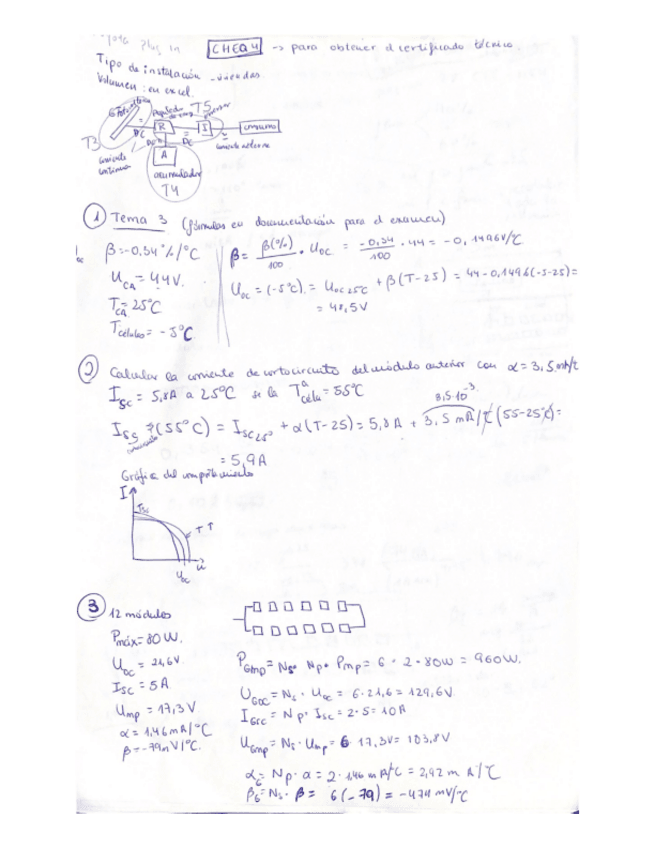 Plug in CHEQ4 → para obtener el certificado técnico.
Tipo de instalación - viviendas
Volumen: en excel.
T5
T3 DC R = I ~ consumo
DC DC
corriente continua A corriente alterna
acumulador
T4
① Tema 3 (fórmulas en documentación para el examen)
β = -0,34 %/°C
U_CA = 44V.
T_CA = 25°C
T_células = -5°C
β = β(%)/100 · U_OC = -0,34/100 · 44 = -0,1496V/°C
U_OC = (-5°C) = U_OC 25°C + β(T-25) = 44-0,1496(-5-25) =
= 48,5V
② Calcular la corriente de cortocircuito del módulo anterior con α = 3,5 mA/°C
I_SC = 5,8A a 25°C si la T^a célula = 55°C
3,5·10^-3
(55°C) = I_SC 25° + α(T-25) = 5,8 A + 3,5 mA/°C (55-25°C) =
= 5,9 A
Gráfica del comportamiento
I
I_SC
T
U
U_OC
③ 12 módulos
Pmáx = 80 W.
U_OC = 21,6V
I_SC = 5A
U_mp = 17,3V
α = 1,46 mA/°C
β = -79mV/°C.
P_Gmp = N_s · N_p · P_mp = 6 · 2 · 80W = 960W.
U_GOC = N_s · U_OC = 6·21,6 = 129,6V.
I_GSC = N_p · I_SC = 2·5 = 10A
U_Gmp = N_s · U_mp = 6 · 17,3V = 103,8V
α_G = N_p · α = 2·1,46 mA/°C = 2,92 mA/°C
β_G = N_s · β = 6(-79) = -474 mV/°C